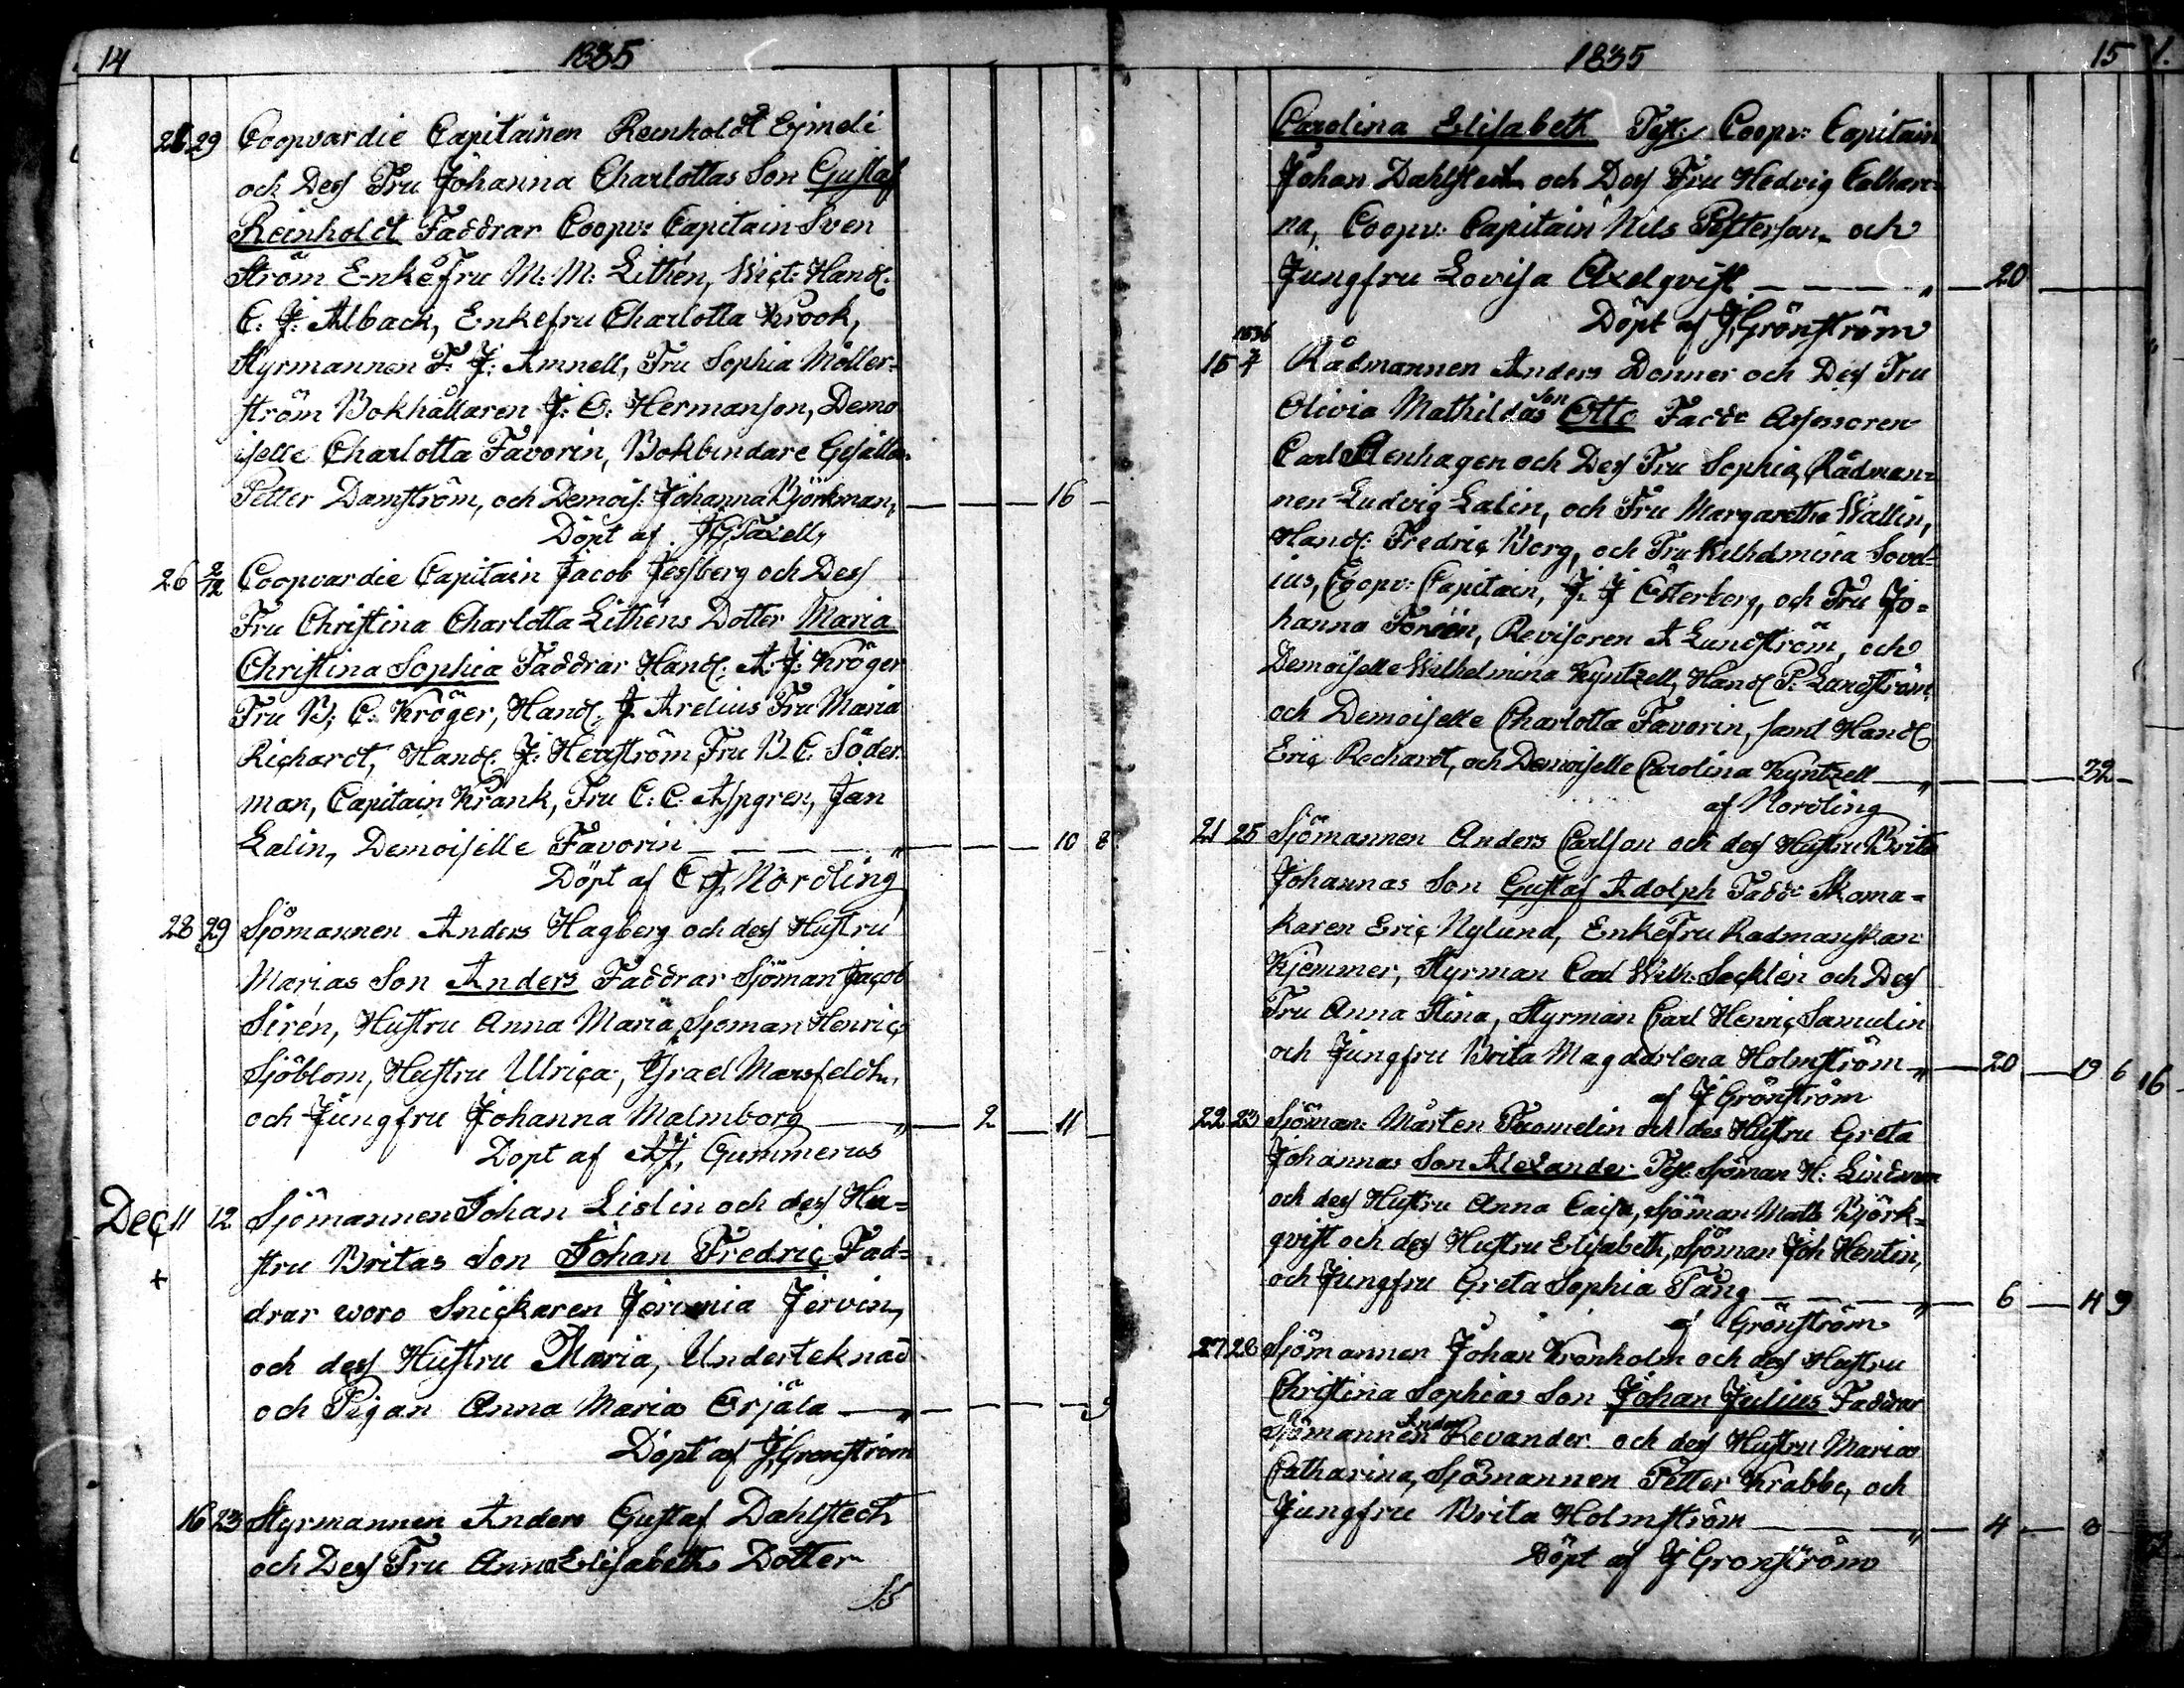 14 1835
26 29 Coopvardie Capitainen Reinholdt Ejmeli
och Dess Fru Johanna Charlottas Son Gustaf
Reinholdt Faddrar Coopv: Capitain Sven
ström Enkefru M: M: Lithén, Vict: Handl:
C: J: Alback, Enkefru Charlotta Krook,
Styrmannen F: J: Amnell, Fru Sophia Möller-
ström Bokhållaren J: C: Hermanson, Demo
iselle Charlotta Favorin, Bokbindare Gesällen
Petter Damström, och Demois: Johanna Björkman, 16
Döpt af Taxell,
26 2/12 Coopvardie Capitain Jacob Jessberg och Dess
Fru Christina Charlotta Lithéns Dotter Maria
Christina Sophia Faddrar Handl: A: J: Kröger
Fru B: C: Kröger, Handl: J Arelius Fru Maria
Richardt, Handl: J: Hedström, Fru B. C. Söder-
man, Capitain Krank, Fru C: C: Aspgren, Jan
Lalin, Demoiselle Favorin „ 10 8
Döpt af C J, Nordling
28 29 Sjömannen Anders Hagberg och dess Hustru
Marias Son Anders Faddrar Sjöman Jacob
Sirén, Hustru Anna Maria, Sjoman Henric
Sjöblom, Hustru Ulrica, Israel Marsfeldt,
och Jungfru Johanna Malmborg „ 2 11
Döpt af AJ, Gummerus
Dec 11 12 Sjömannen Johan Lislin och dess Hu=
stru Britas Son Johan Fredric Fad=
+
drar woro Snickaren Jeremia Jervin,
och dess Hustru Maria, Underteknad
och Pigan Anna Maria Orjala „ 9
Döpt af J, Grönström
16 23 Styrmannen Anders Gustaf Dahlstedt
och Dess Fru Anna Elisabeths Dotter
15
1835 15
Carolina Elisabeth Test: Coopv: Capitain
Johan Dahlstedt och Dess Fru Hedvig Cathari-
na, Coopv: Capitain Nils Petterson och
Jungfru Lovisa Axelqvist „ 20
Döpt af J, Grönström
1836
15 Rådmannen Anders Donner och Dess Fru
Olivia Mathildas Son Otto Fadd: Assessoren
Carl Stenhagen och Dess Fru Sophia, Rådman=
nen Ludvig Lalin, och Fru Margaretha Wallin,
Handl: Fredric Borg, och Fru Wilhelmina Sovel=
ius, Coopv: Capitain, J: J Österberg, och Fru Jo=
hanna Forsén, Revisoren A Lundström, och
Demoiselle Wilhelmina Kyntzell, Handl P: Lundström,
och Demoiselle Charlotta Favorin, samt Handl
Eric Rechardt, och Demoiselle Carolina Kyntzell „ 32
af Nordling
21 25 Sjömannen Anders Carlson och dess Hustru Brita
Johannas Son Gustaf Adolph Fadd: Skoma=
karen Eric Nylund, EnkeFru Radmanskan
Kjemmer, Styrman Carl Wilh: Secklén och Dess
Fru Anna Stina, Styrman Carl Henric Samulin
och Jungfru Brita Magdalena Holmström „ 20 19 6
af J Grönström
22 23 Sjöman: Mårten Tuomelin och des Hustru Greta
Johannas Son Alexander Test: Sjöman H: Lindman
och dess Hustru Anna Caisa, Sjöman Matts Björk=
qvist och dess Hustru Elisabeth, Sjöman Joh Hentin,
och Jungfru Greta Sophia Tång „ 6 4 9
af Grönström
27 28 Sjömannen Johan Kronholm och dess Hustru
Christina Sophias Son Johan Julius Faddrar
Sjömannen Anders Revander och dess Hustru Maria
Catharina, Sjömannen Petter Krabbe, och
Jungfru Brita Holmström „ 4 8
Döpt af J Grönström
16